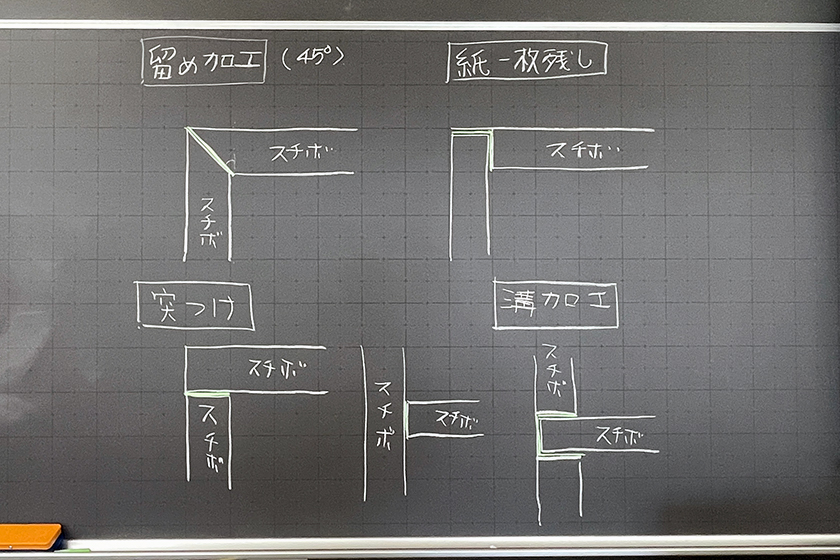 留め加工 (45°)
スチボ
スチボ
紙一枚残し
スチボ
突つけ
スチボ
スチボ
スチボ
スチボ
溝加工
スチボ
スチボ